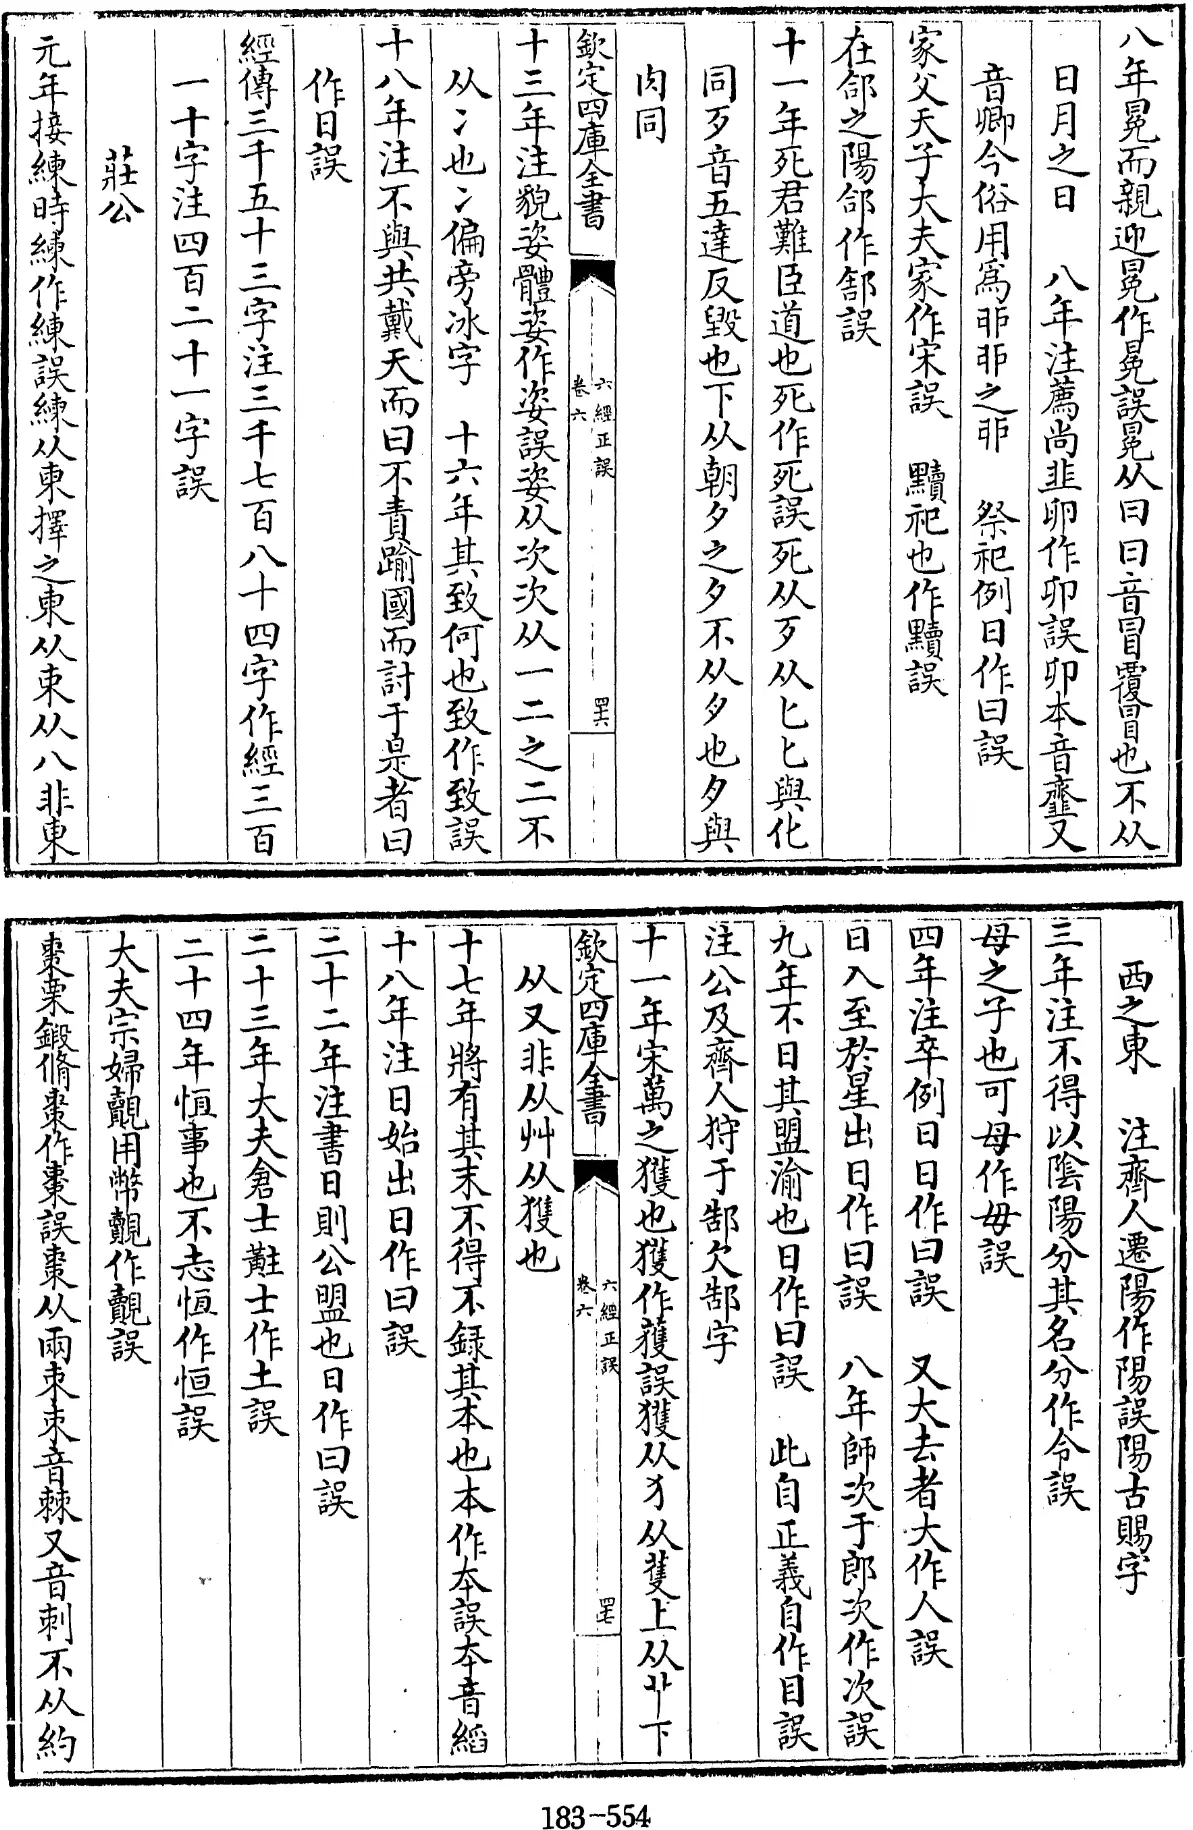 八年冕而親迎冕作冕誤冕从曰曰音冒覆冒也不从
日月之日　八年注薦尚韭卵作卯誤卯本音虀又
音卿今俗用爲戼戼之戼　祭祀例日作曰誤
家父天子大夫家作宋誤　黷祀也作黷誤
在郃之陽郃作郜誤
十一年死君難臣道也死作死誤死从歹从匕匕與化
同歹音五達反毀也下从朝夕之夕不从夕也夕與
肉同
欽定四庫全書
六經正誤
卷六
罢
十三年注貌姿體姿作姿誤姿从次次从一二之二不
从冫也冫偏旁冰字　十六年其致何也致作致誤
十八年注不與共戴天而曰不責踰國而討于是者曰
作日誤
經傳三千五十三字注三千七百八十四字作經三百
一十字注四百二十一字誤
莊公
元年接練時練作練誤練从柬擇之柬从束从八非東
西之東　注齊人遷陽作陽誤陽古賜字
三年注不得以陰陽分其名分作令誤
母之子也可母作毋誤
四年注卒例日日作曰誤　又大去者大作人誤
日入至於星出日作曰誤　八年師次于郎次作次誤
九年不日其盟渝也日作曰誤　此自正義自作目誤
注公及齊人狩于郜欠郜字
十一年宋萬之獲也獲作獲誤獲从犭从蒦上从艹下
欽定四庫全書
六經正誤
卷六
从又非从艸从獲也
十七年將有其末不得不録其本也本作夲誤夲音縚
十八年注日始出日作曰誤
二十二年注書日則公盟也日作曰誤
二十三年大夫倉士黈士作土誤
二十四年恒事也不志恒作恒誤
大夫宗婦覿用幣覿作覿誤
棗栗鍛脩棗作棗誤棗从兩朿朿音棘又音刺不从約
183-554